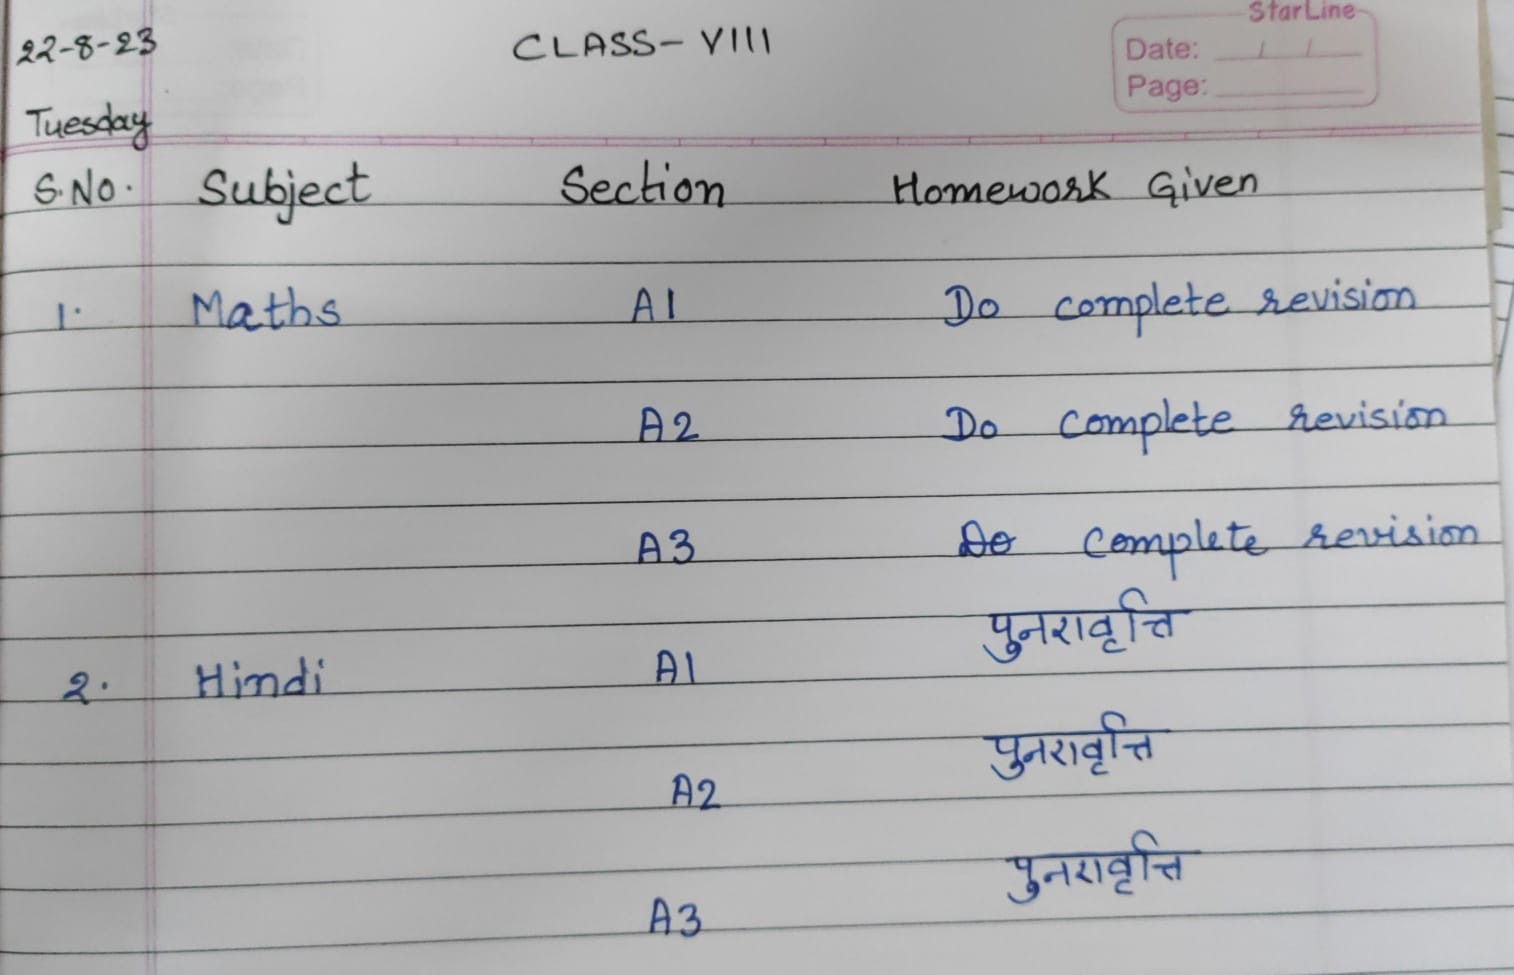 StarLine
22-8-23 CLASS- VIII Date: / /
Page:
Tuesday
S.No. Subject Section Homework Given
1. Maths A1 Do complete revision
A2 Do complete revision
A3 Do complete revision
पुनरावृत्ति
2. Hindi A1
पुनरावृत्ति
A2
पुनरावृत्ति
A3